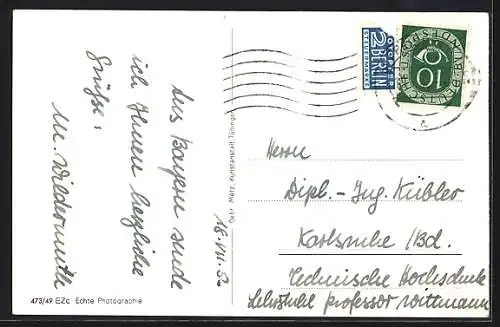 Aus Bayern sende
ich Ihnen herzliche
Grüsse:
M. Wildermuth
16. VIII. 52
Gebr. Metz, Kunstanstalt, Tübingen
473/49 EZc Echte Photographie
NOTOPFER
2 BERLIN
STEUERMARKE
DEUTSCHE BUNDESPOST
10
Herrn
Dipl.-Ing. Kübler
Karlsruhe / Bd.
Technische Hochschule
Lehrstuhl Professor Wittmann